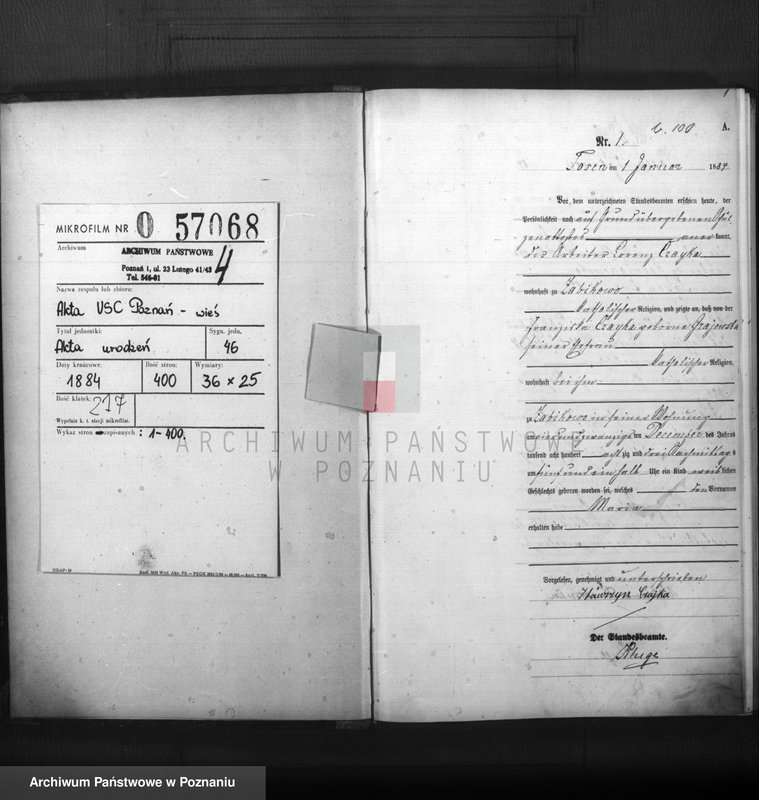 MIKROFILM NR 0 57068
Archiwum
ARCHIWUM PAŃSTWOWE
Poznań 1, ul. 23 Lutego 41/43
Tel. 546-01
4
Nazwa zespołu lub zbioru:
Akta USC Poznań - wieś
Tytuł jednostki: Sygn. jedn.
Akta urodzeń 46
Daty krańcowe: Ilość stron: Wymiary:
1884 400 36 x 25
Ilość klatek: 217
Wypełnia k. t. stacji mikrofilm.
Wykaz stron zapisanych: 1-400.
1
b. 100
A.
Nr. 1.
Posen am 1 Januar 1884.
Vor dem unterzeichneten Standesbeamten erschien heute, der
Persönlichkeit nach auf Grund übergebenen Schul
zenattestes anerkannt,
der Arbeiter Lorenz Czayka
wohnhaft zu Zabikowo
katholischer Religion, und zeigte an, daß von der
Franziska Czayka geborne
seiner Ehefrau
katholischer Religion,
wohnhaft bei ihm
zu Zabikowo in seiner Wohnung
am vierundzwanzigsten December des Jahres
tausend acht hundert achtzig und drei Nachmittags
um fünf und ein halb Uhr ein Kind weiblichen
Geschlechts geboren worden sei, welches den Vornamen
Maria
erhalten habe
Vorgelesen, genehmigt und unterschrieben
Wawrzyn Czajka
Der Standesbeamte.
Kluge
ARCHIWUM PAŃSTWOWE
W POZNANIU
Archiwum Państwowe w Poznaniu